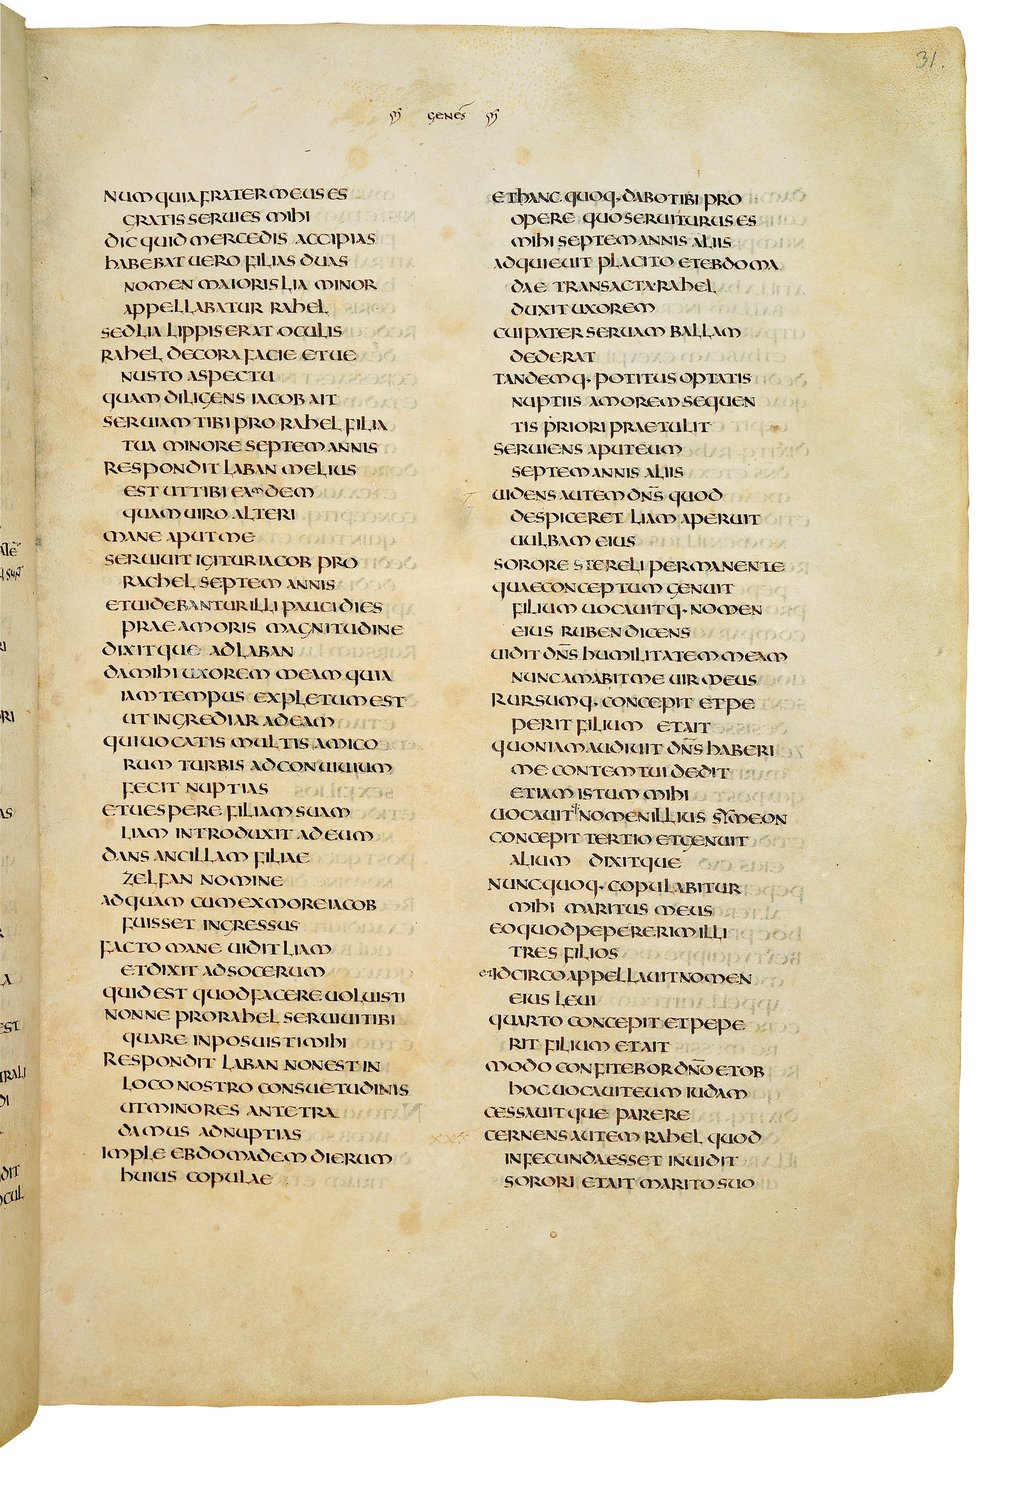 31.
GENES
NUMQUIA FRATER MEUS ES
GRATIS SERUIES MIHI
DIC QUID MERCEDIS ACCIPIAS
HABEBAT UERO FILIAS DUAS
NOMEN MAIORIS LIA MINOR
APPELLABATUR RAHEL
SED LIA LIPPIS ERAT OCULIS
RAHEL DECORA FACIE ET UE
NUSTO ASPECTU
QUAM DILIGENS IACOB AIT
SERUIAM TIBI PRO RAHEL FILIA
TUA MINORE SEPTEM ANNIS
RESPONDIT LABAN MELIUS
EST UT TIBI EAM DEM
QUAM UIRO ALTERI
MANE APUT ME
SERUIUIT IGITUR IACOB PRO
RACHEL SEPTEM ANNIS
ET UIDEBANTUR ILLI PAUCI DIES
PRAE AMORIS MAGNITUDINE
DIXITQUE AD LABAN
DA MIHI UXOREM MEAM QUIA
IAM TEMPUS EXPLETUM EST
UT INGREDIAR AD EAM
QUI UOCATIS MULTIS AMICO
RUM TURBIS AD CONUIUIUM
FECIT NUPTIAS
ET UESPERE FILIAM SUAM
LIAM INTRODUXIT AD EUM
DANS ANCILLAM FILIAE
ZELFAN NOMINE
AD QUAM CUM EX MORE IACOB
FUISSET INGRESSUS
FACTO MANE UIDIT LIAM
ET DIXIT AD SOCERUM
QUID EST QUOD FACERE UOLUISTI
NONNE PRO RAHEL SERUIUI TIBI
QUARE INPOSUISTI MIHI
RESPONDIT LABAN NON EST IN
LOCO NOSTRO CONSUETUDINIS
UT MINORES ANTE TRA
DAMUS AD NUPTIAS
IMPLE EBDOMADEM DIERUM
HUIUS COPULAE
ET HANC QUOQ· DABO TIBI PRO
OPERE QUO SERUITURUS ES
MIHI SEPTEM ANNIS ALIIS
ADQUIEUIT PLACITO ET EBDOMA
DAE TRANSACTA RAHEL
DUXIT UXOREM
CUI PATER SERUAM BALLAM
DEDERAT
TANDEMQ· POTITUS OPTATIS
NUPTIIS AMOREM SEQUEN
TIS PRIORI PRAETULIT
SERUIENS APUT EUM
SEPTEM ANNIS ALIIS
UIDENS AUTEM DN̅S QUOD
DESPICERET LIAM APERUIT
UULBAM EIUS
SORORE STERELI PERMANENTE
QUAE CONCEPTUM GENUIT
FILIUM UOCAUITQ· NOMEN
EIUS RUBEN DICENS
UIDIT DN̅S HUMILITATEM MEAM
NUNC AMABIT ME UIR MEUS
RURSUMQ· CONCEPIT ET PE
PERIT FILIUM ET AIT
QUONIAM AUDIUIT DN̅S HABERI
ME CONTEMTUI DEDIT
ETIAM ISTUM MIHI
UOCAUIT NOMEN ILLIUS SYMEON
CONCEPIT TERTIO ET GENUIT
ALIUM DIXITQUE
NUNC QUOQ· COPULABITUR
MIHI MARITUS MEUS
EO QUOD PEPERERIM ILLI
TRES FILIOS
ET IDCIRCO APPELLAUIT NOMEN
EIUS LEUI
QUARTO CONCEPIT ET PEPE
RIT FILIUM ET AIT
MODO CONFITEBOR DN̅O ET OB
HOC UOCAUIT EUM IUDAM
CESSAUITQUE PARERE
CERNENS AUTEM RAHEL QUOD
INFECUNDA ESSET INUIDIT
SORORI ET AIT MARITO SUO